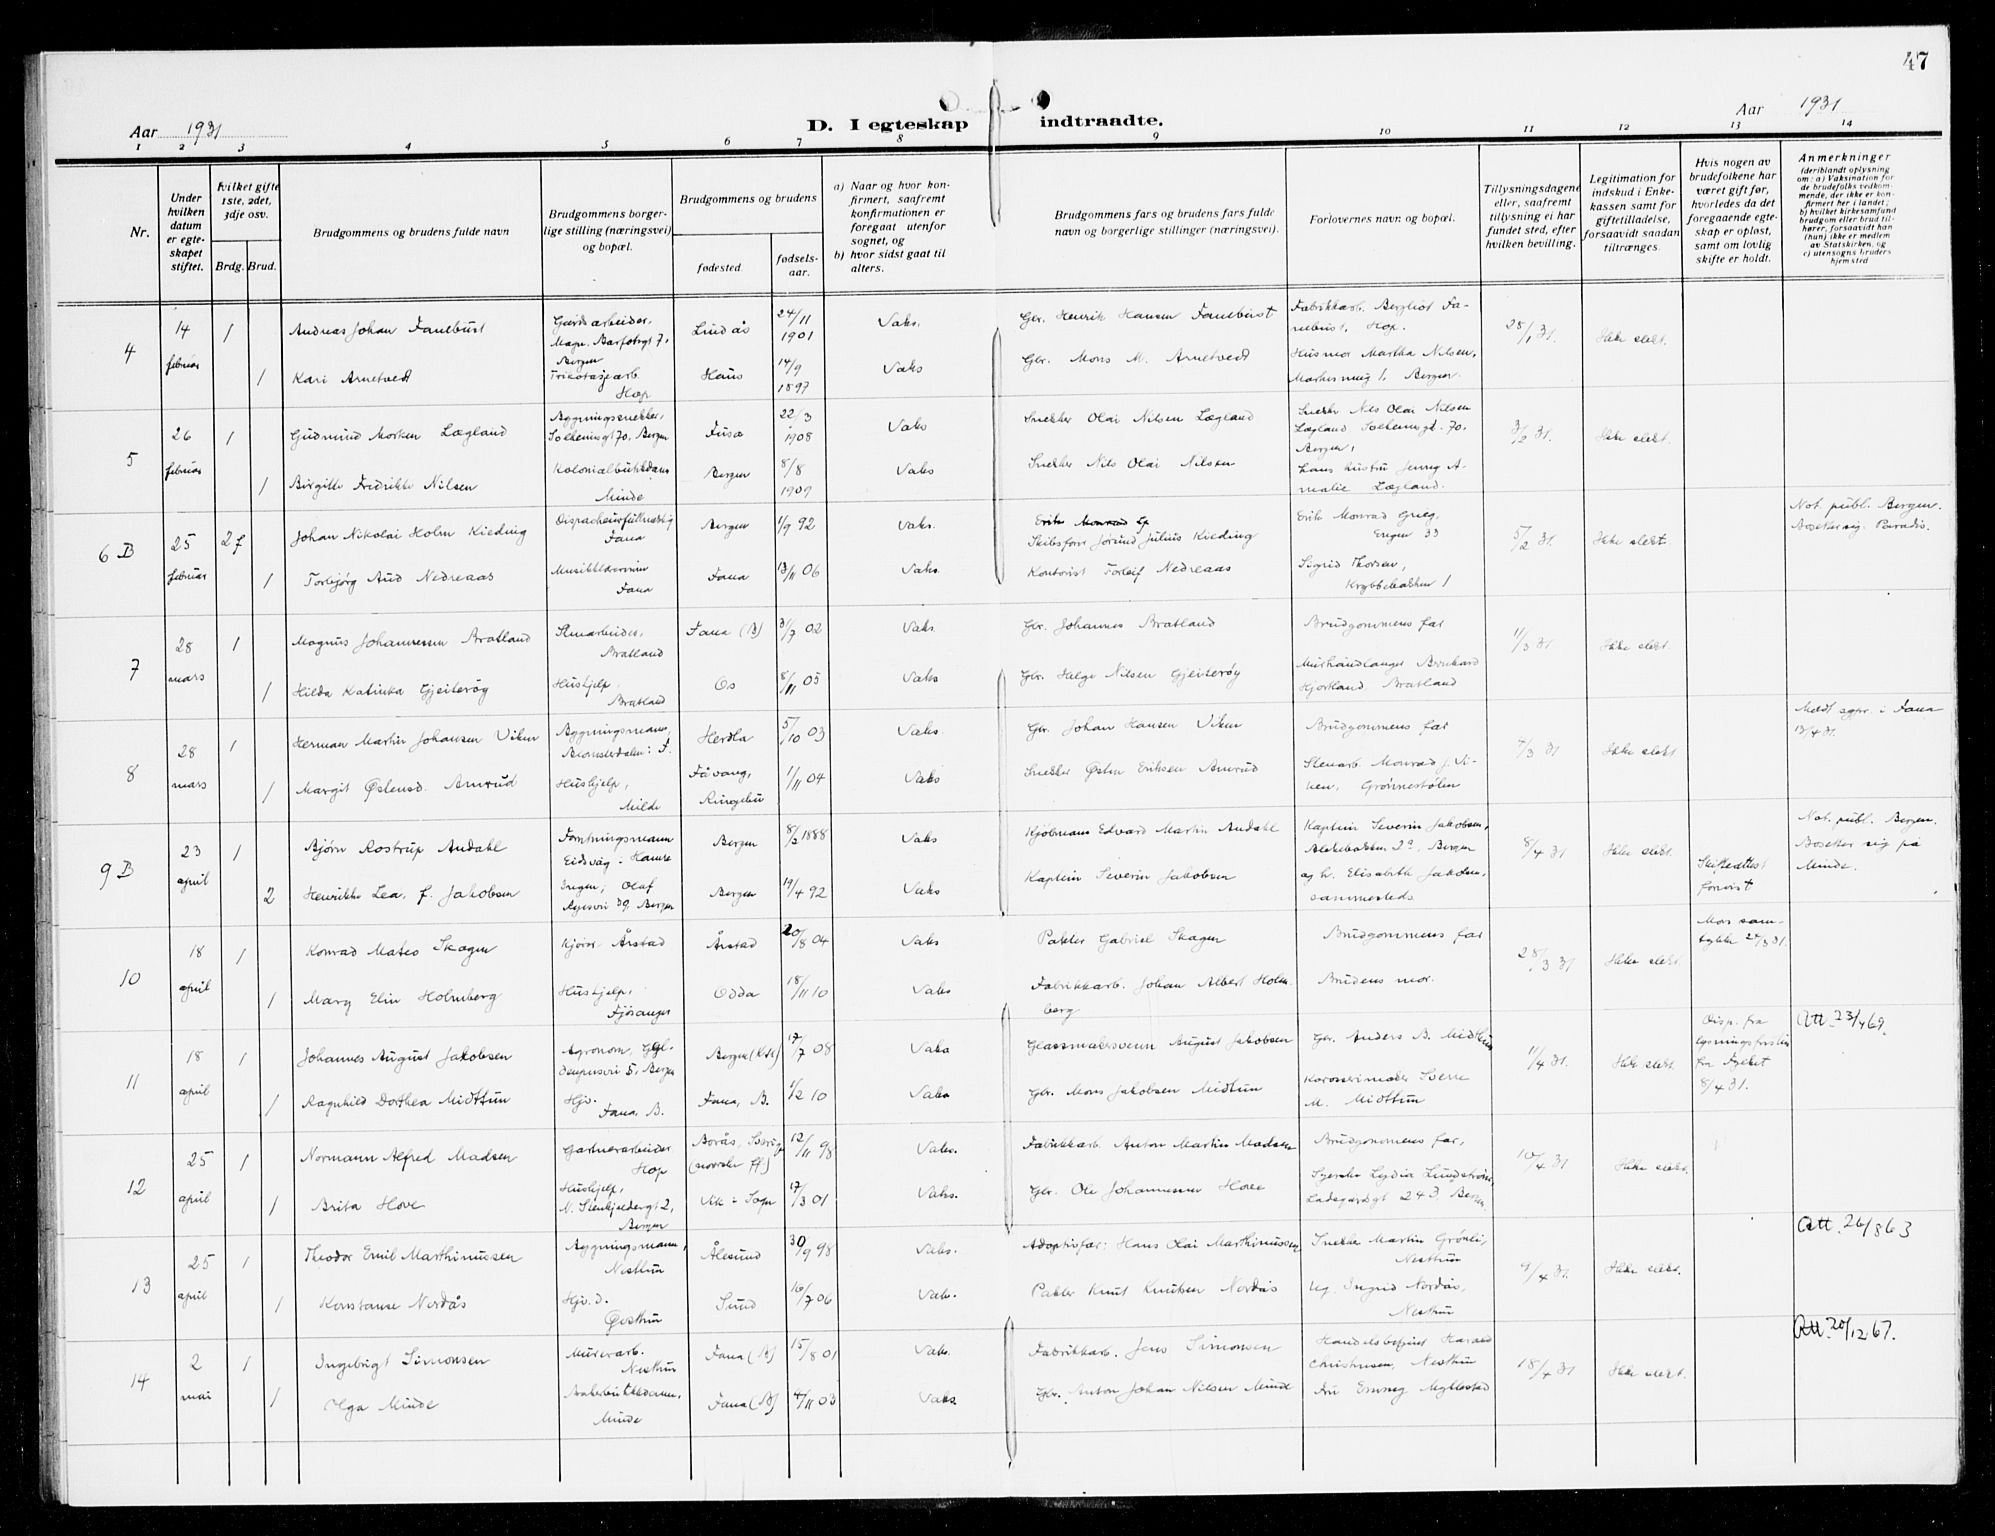 47
Aar 1931
D. I egteskap indtraadte.
Aar 1931
1 2 3 4 5 6 7 8 9 10 11 12 13 14
Nr.
Under hvilken datum er egteskapet stiftet.
hvilket gifte 1ste, 2det, 3dje osv.
Brdg. Brud.
Brudgommens og brudens fulde navn
Brudgommens borgerlige stilling (næringsvei) og bopæl.
Brudgommens og brudens
fødested.
fødselsaar.
a) Naar og hvor konfirmert, saafremt konfirmationen er foregaat utenfor sognet, og
b) hvor sidst gaat til alters.
Brudgommens fars og brudens fars fulde navn og borgerlige stillinger (næringsvei).
Forlovernes navn og bopæl.
Tillysningsdagene eller, saafremt tillysning ei har fundet sted, efter hvilken bevilling.
Legitimation for indskud i Enkekassen samt for giftetilladelse, forsaavidt saadan tiltrænges.
Hvis nogen av brudefolkene har været gift før, hvorledes da det foregaaende egteskap er opløst, samt om lovlig skifte er holdt.
Anmerkninger (deriblandt oplysning om: a) Vaksination for de brudefolks vedkommende, der ikke er konfirmert her i landet; b) hvilket kirkesamfund brudgom eller brud tilhører, forsaavidt han (hun) ikke er medlem av Statskirken, og c) utensogns bruders hjemsted
4 14 februar 1 Andreas Johan Fanebust Gaardsarbeider, Bergen Lindås 24/11 1901 Vaks. Gbr. Henrik Hansen Fanebust Fabrikkarb. Bergliot Fanebust, Hop. 28/1 31. Ikke slekt.
1 Kari Arnetvedt Trikotasjearb. Hop Haus 14/9 1897 Vaks Gbr. Mons M. Arnetvedt Husmor Martha Nilsen, Bergen.
5 26 februar 1 Gudmund Morken Lægland Bygningssnekker, Solheimsgt 70, Bergen Fusa 22/3 1908 Vaks Snekker Olai Nilsen Lægland Snekker Nils Olai Nilsen Lægland Solheimsgt. 70, Bergen, 3/2 31. Ikke slekt.
1 Birgitte Fredrikke Nilsen Minde Bergen 8/8 1909 Vaks Snekker Nils Olai Nilsen hans hustru Jenny Amalie Lægland.
6 B 25 februar 2 f Johan Nikolai Holm Kieding Fana Bergen 1/9 92 Vaks. Skibsfører Jørund Julius Kieding Erik Monrad Grieg, Engen 33 5/2 31. Ikke slekt. Not. publ. Bergen. Bosetter sig Paradis.
1 Torbjørg Aud Nedreaas Musikklærerinne Fana Fana 13/11 06 Vaks. Kontorist Torleif Nedreaas Sigrid Thorsen, Krybbebakken 1
7 28 mars 1 Magnus Johannessen Bratland Stenarbeider, Bratland Fana (B) 31/7 02 Vaks. Gbr. Johannes Bratland Brudgommens far 11/3 31 Ikke slekt.
1 Hilda Katinka Gjeiterøy Hushjelp, Bratland Os 8/11 05 Vaks Gbr. Helge Nilsen Gjeiterøy Murhåndlanger Bernhard Hjortland Bratland
8 28 mars 1 Herman Martin Johansen Viken Bygningsmann, Blomsterdalen i F. Herdla 5/10 03 Vaks. Gbr. Johan Hansen Viken Brudgommens far 7/3 31 Ikke slekt. Meldt sgpr. i Fana 13/4 31.
1 Margit Østensd. Amrud Hushjelp, Milde Fåvang, Ringebu 1/11 04 Vaks Snekker Østen Eriksen Amrud Stenarb. Monrad J. Viken, Grønnestølen
9 B 23 april 1 Bjørn Rostrup Andahl Forretningsmann Eidsvåg i Hamre Bergen 8/2 1888 Vaks Kjøbmann Edvard Martin Andahl Kaptein Severin Jakobsen, Blekebakken 2a, Bergen 8/4 31 Ikke slekt. Skifteattest forevist Not. publ. Bergen. Bosetter sig på Minde.
2 Henrikke Lea, f. Jakobsen Ingen; Olaf Ryesvei 39 Bergen Bergen 19/4 92 Vaks Kaptein Severin Jakobsen og h. Elisabeth Jakobsen, sammesteds
10 18 april 1 Konrad Mateo Skagen Kjører Årstad Årstad 20/8 04 Vaks Pakker Gabriel Skagen Brudgommens far 28/3 31 Ikke slekt. Mors samtykke 24/3 31.
1 Mary Elin Holmberg Hushjelp, Fjøsanger Odda 18/11 10 Vaks Fabrikkarb. Johan Albert Holmberg Brudens mor.
11 18 april 1 Johannes August Jakobsen Agronom, Bergen Bergen 17/7 08 Vaks Glassmakersvenn August Jakobsen Gbr. Anders B. Midttun 11/4 31. Ikke slekt. Disp. fra lysningsfristen fra Fylket 8/4 31. Att. 23/4 69.
1 Ragnhild Dorthea Midttun Hjv. Fana, B. Fana, B. 1/2 10 Vaks Gbr. Mons Jakobsen Midttun Karosserimaker Sverre M. Midttun
12 25 april 1 Normann Alfred Madsen Gartnerarbeider Hop Borås, Sverige (norske ff) 12/11 98 Vaks. Fabrikkarb. Anton Martin Madsen Brudgommens far, 10/4 31 Ikke slekt.
1 Brita Hove Hushjelp, Bergen Vik i Sogn 17/3 01 Vaks. Gbr. Ole Johannessen Hove Syerske Lydia Lundstrøm Ladegårdsgt 243 Bergen
13 25 april 1 Theodor Emil Marthinussen Bygningsmann, Nesttun Ålesund 30/9 98 Vaks. Adoptivfar: Hans Olai Marthinussen Snekker Martin Grønli, Nesttun 9/4 31. Ikke slekt. Att. 26/8 63
1 Konstanse Nordås Hjv. d. Øvsttun Sund 16/7 06 Vaks. Pakker Knut Knutsen Nordås Ug. Ingrid Nordås, Nesttun
14 2 mai 1 Ingebrigt Simonsen Murerarb. Nesttun Fana (B) 15/8 01 Vaks. Fabrikkarb. Jens Simonsen Handelsbetjent Harald Christensen, Nesttun 18/4 31 Ikke slekt. Att. 20/12 67.
1 Olga Minde Minde Fana (B) 4/11 03 Vaks. Gbr. Anton Johan Nilsen Minde Fru Emmy Myklestad